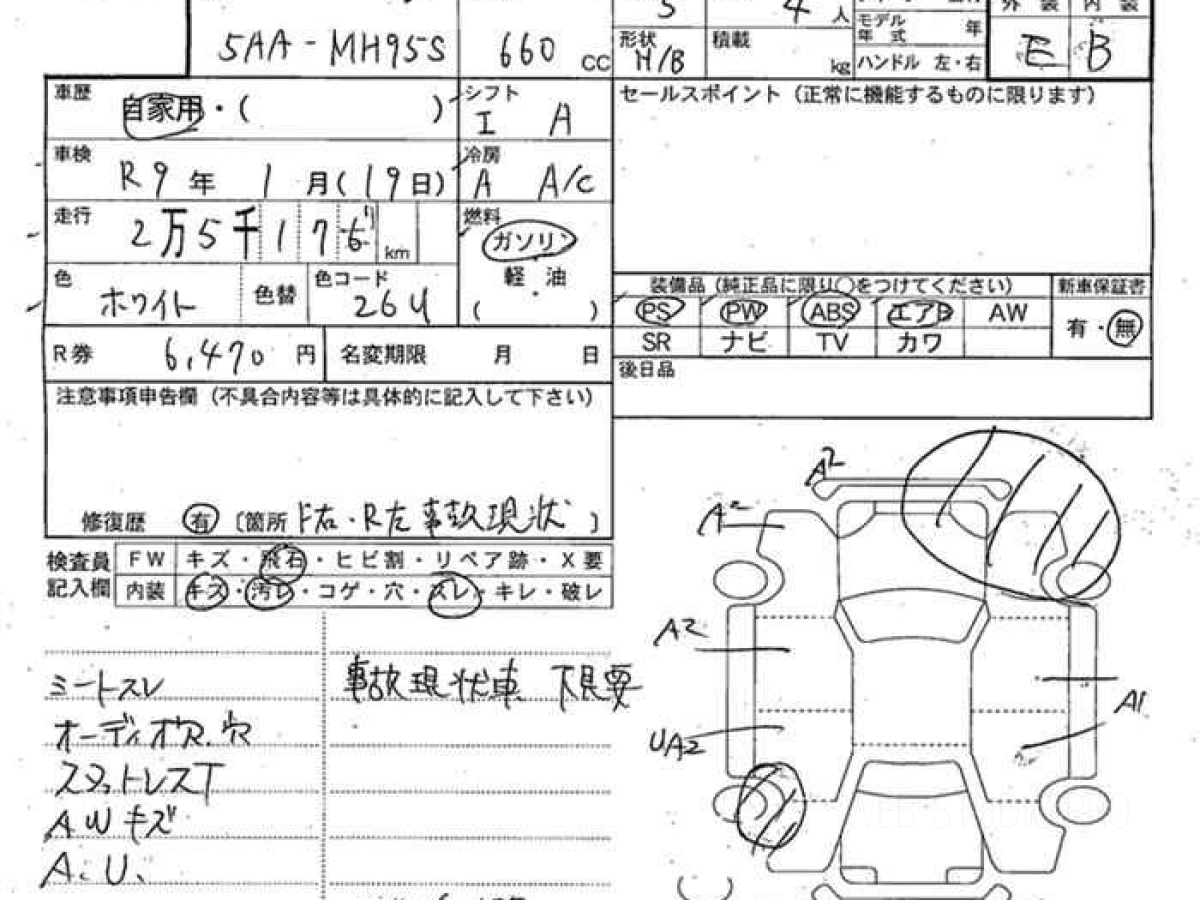 5 4人 モデル年式 年 外装 内装
5AA-MH95S 660 CC 形状 H/B 積載 kg ハンドル 左・右 E B
車歴 自家用・( ) シフト I A セールスポイント（正常に機能するものに限ります）
車検 R9年 1月(19日) 冷房 A A/C
走行 2万5千17 km 燃料 ガソリン
軽油
( )
色 ホワイト 色替 色コード 26U
装備品（純正品に限り○をつけてください） 新車保証書
PS PW ABS エアB AW 有・無
SR ナビ TV カワ
R券 6,470円 名変期限 月 日
後日品
注意事項申告欄（不具合内容等は具体的に記入して下さい）
修復歴 有 〔箇所 F右・R左 事故現状 〕
検査員記入欄 FW キズ・飛石・ヒビ割・リペア跡・X要
内装 キズ・汚レ・コゲ・穴・スレ・キレ・破レ
シートスレ 事故現状車 下見要
オーディオ欠.穴
スタットレスT
AWキズ
A.U.
A2
A2
A2
A1
UA2